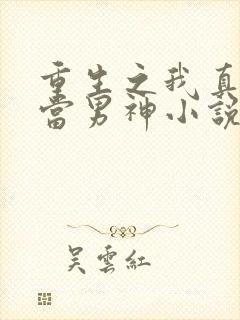 重生之我真
當男神小說
吳雲紅